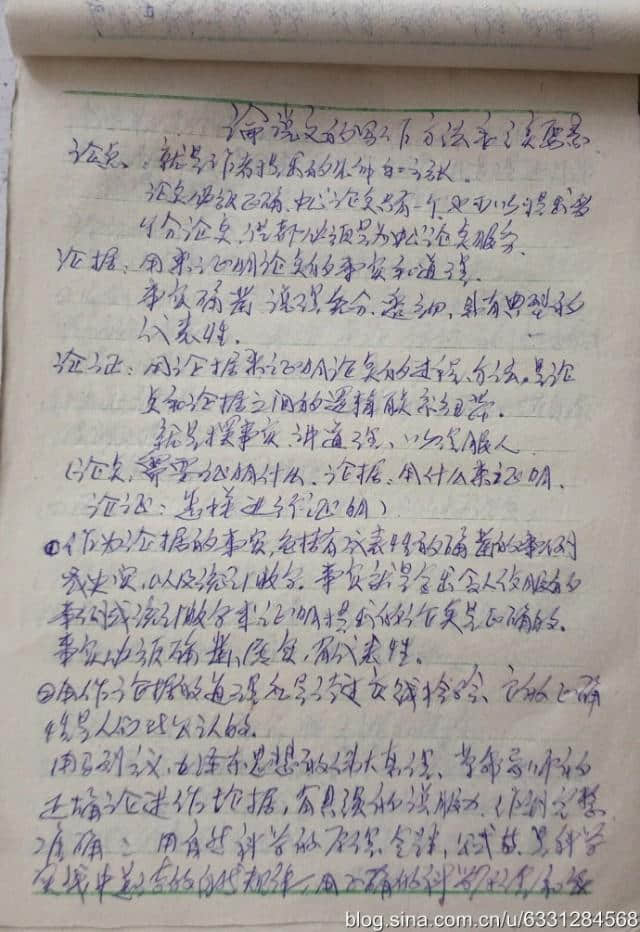 论说文的写作方法和注意
论点:就是作者提出的条件和主张。
论点必须正确,中心论点只有一个,也可以提出若
个分论点,但都必须是为中心论点服务。
论据:用来证明论点的事实和道理。
事实确凿,说理充分,具有典型的
代表性。
论证:用论据来证明论点的过程、方法。是论
点和论据之间的逻辑联系纽带。
就是摆事实,讲道理,以理服人。
(论点,需要证明什么,论据:用什么来证明,
论证:怎样进行证明)
①作为论据的事实,包括有代表性的确凿的事例
或史实,以及统计数字。事实就是拿出令人信服的
事例或统计数字来证明提出的论点是正确的。
事实必须确凿,真实,有代表性。
②用作论据的道理是经过实践检验、它的正确
性是人们所公认的。
用马列主义、毛泽东思想的伟大真理、革命导师的
正确论述作论据,有很强的说服力,作到完整
准确;用自然科学的原理、定律、公式等,是科学
实践中总结的自然规律,用正确的科学
blog.sina.com.cn/u/6331284568